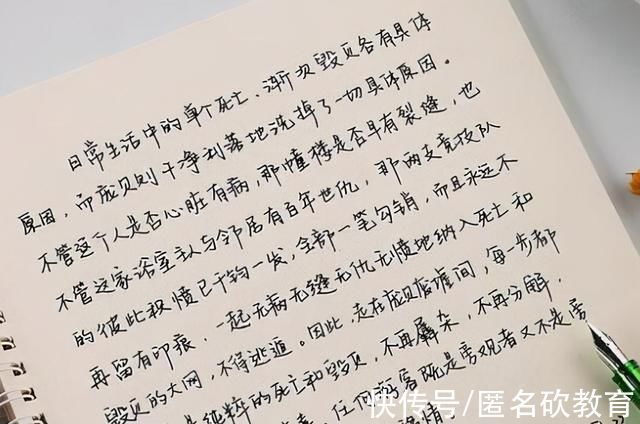 日常生活中的单个死亡、渐次毁灭各有具体
原因，而庞贝则干净利落地洗掉了一切具体原因。
不管这个人是否心脏有病，那幢楼是否早有裂缝，也
不管这家浴室主人与邻居有百年世仇，那两支竞技队
的彼此积愤已千钧一发，全部一笔勾销，而且永远不
再留有印痕，一起无病无缝无仇无愤地纳入死亡和
毁灭的大网，不得逃遁。因此，走在庞贝废墟间，每一步都
是纯粹的死亡和毁灭，不再羼杂，不再分解，
任何游客既是旁观者又不是旁
快传号/匿名砍教育